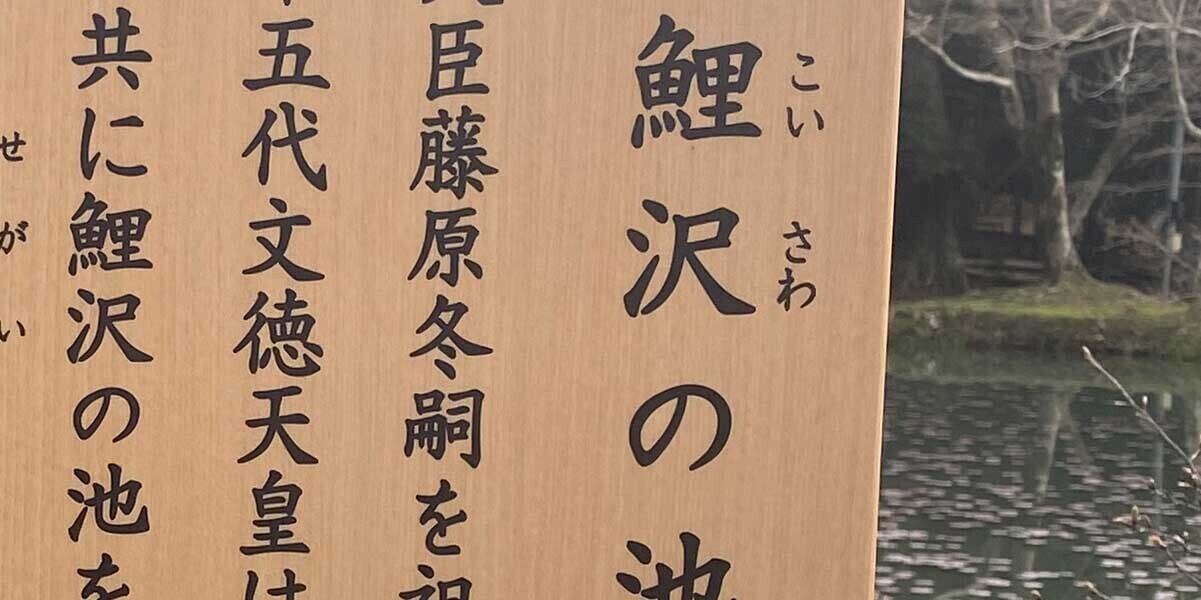 鯉沢の池
こいさわ
臣藤原冬嗣を祖
五代文徳天皇は
共に鯉沢の池を
せがい